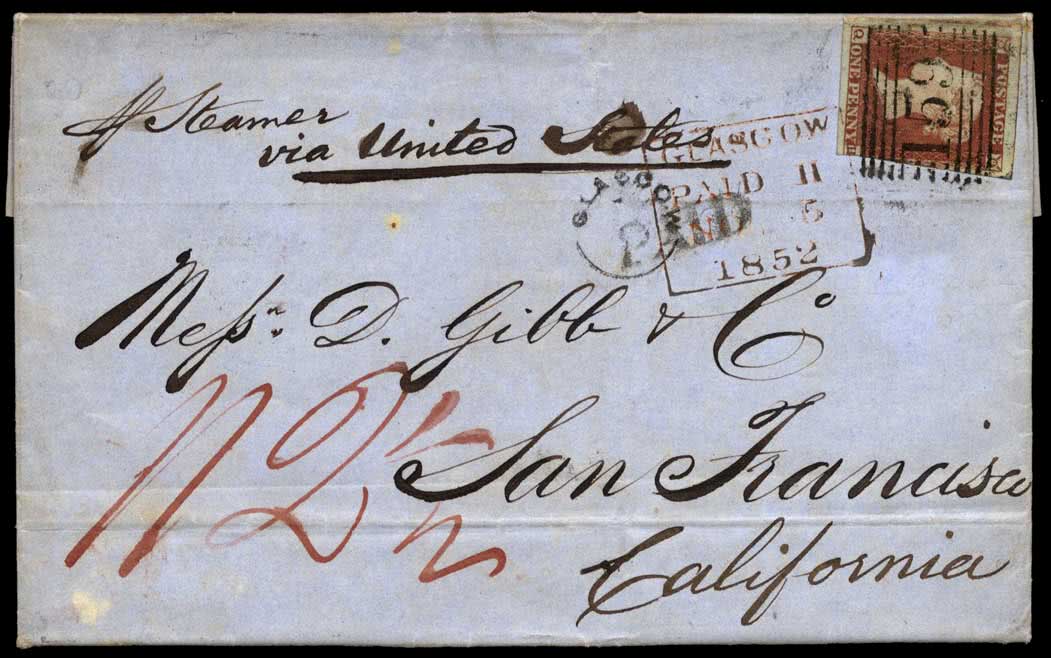 ⅌ Steamer
via United States
GLASGOW
PAID 11
5
1852
GLASGOW
PAID
POSTAGE
ONE PENNY
159
Messrs. D. Gibb & Co
1/2½
San Francisco
California